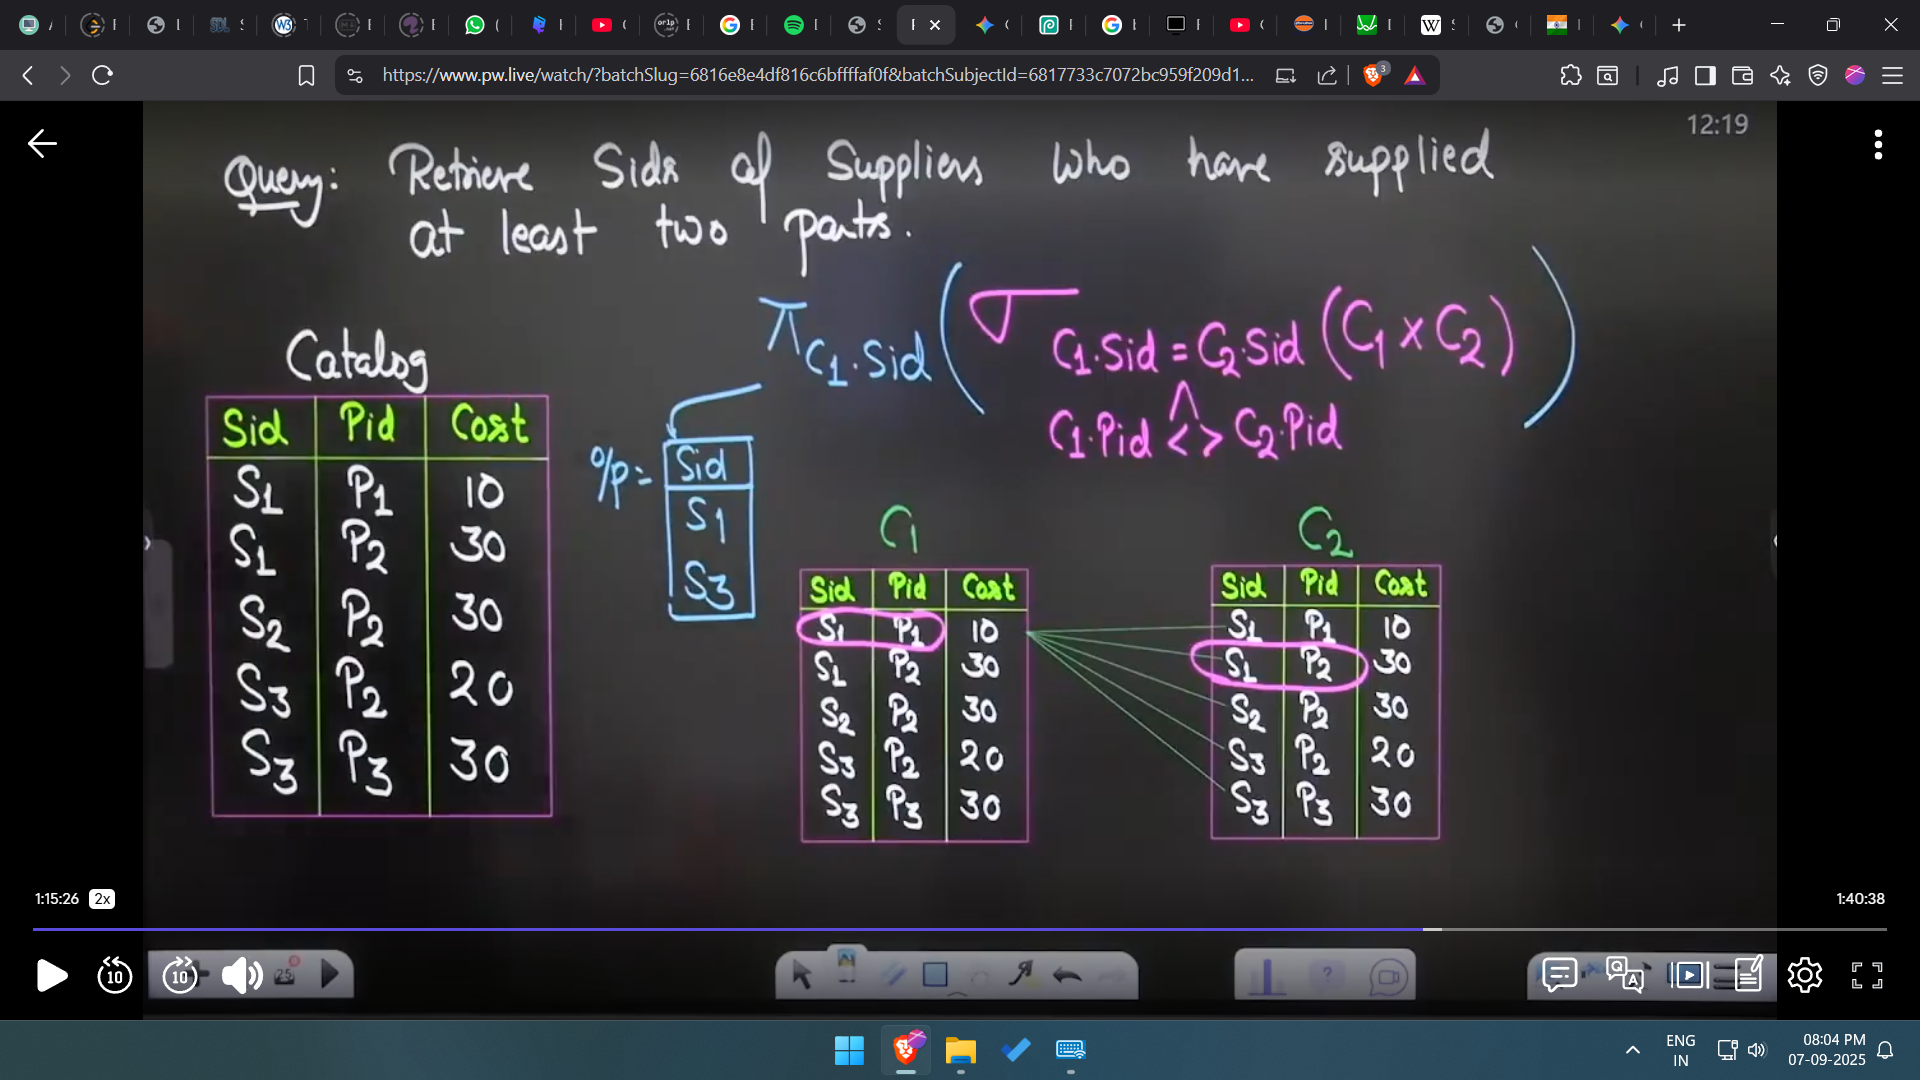 https://www.pw.live/watch/?batchSlug=6816e8e4df816c6bffffaf0f&batchSubjectId=6817733c7072bc959f209d1...
3
12:19
Query: Retrieve Sids of Suppliers who have supplied
at least two parts.
π C1.Sid ( σ C1.Sid = C2.Sid (C1 × C2) )
∧
C1.Pid <> C2.Pid
Catalog
Sid Pid Cost
S1 P1 10
S1 P2 30
S2 P2 30
S3 P2 20
S3 P3 30
o/p =
Sid
S1
S3
C1
Sid Pid Cost
S1 P1 10
S1 P2 30
S2 P2 30
S3 P2 20
S3 P3 30
C2
Sid Pid Cost
S1 P1 10
S1 P2 30
S2 P2 30
S3 P2 20
S3 P3 30
1:15:26 2x
1:40:38
10 10
25
ENG
IN
08:04 PM
07-09-2025